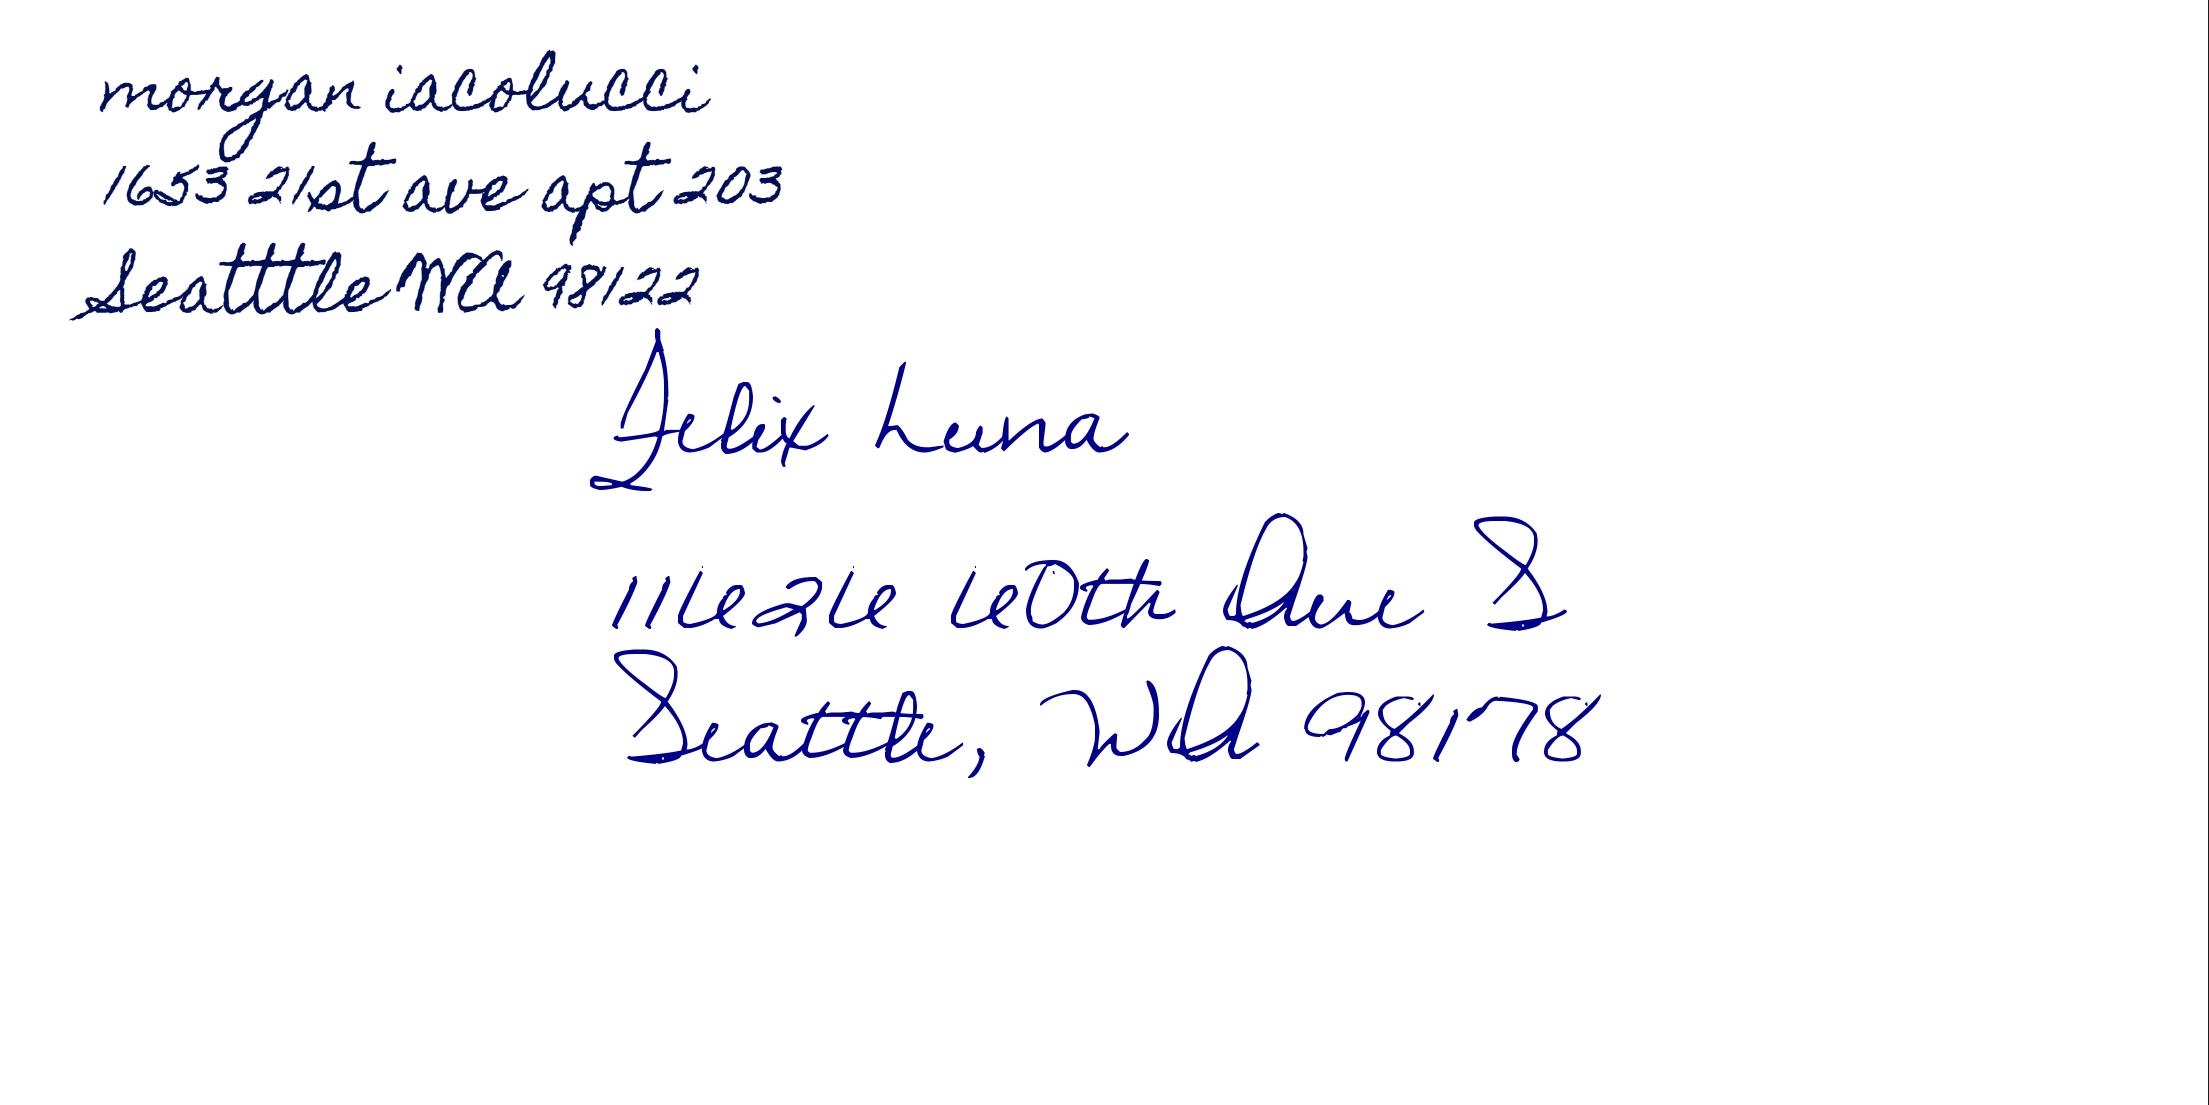 morgan iacolucci
1653 21st ave apt 203
Seatttle WA 98122
Felix Luna
11626 60th Ave S
Seattle, WA 98178